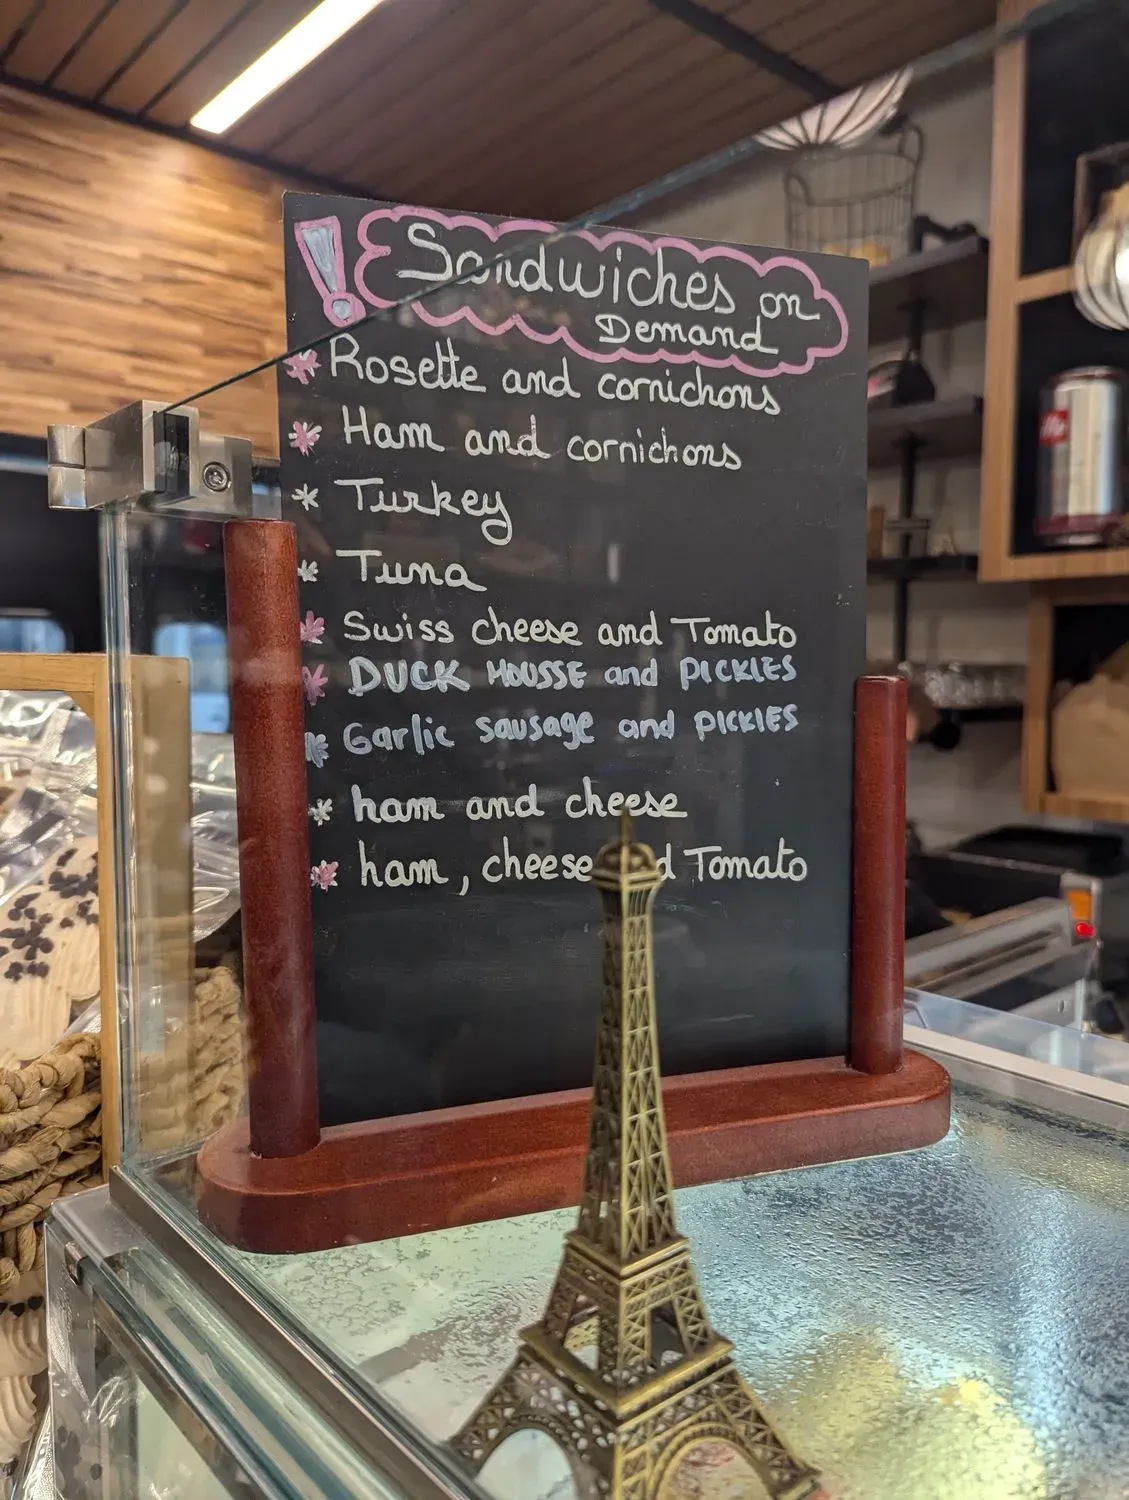 ! Sandwiches on
Demand
* Rosette and cornichons
* Ham and cornichons
* Turkey
* Tuna
* Swiss cheese and Tomato
* DUCK MOUSSE and PICKLES
* Garlic sausage and PICKLES
* ham and cheese
* ham, cheese d Tomato
illy